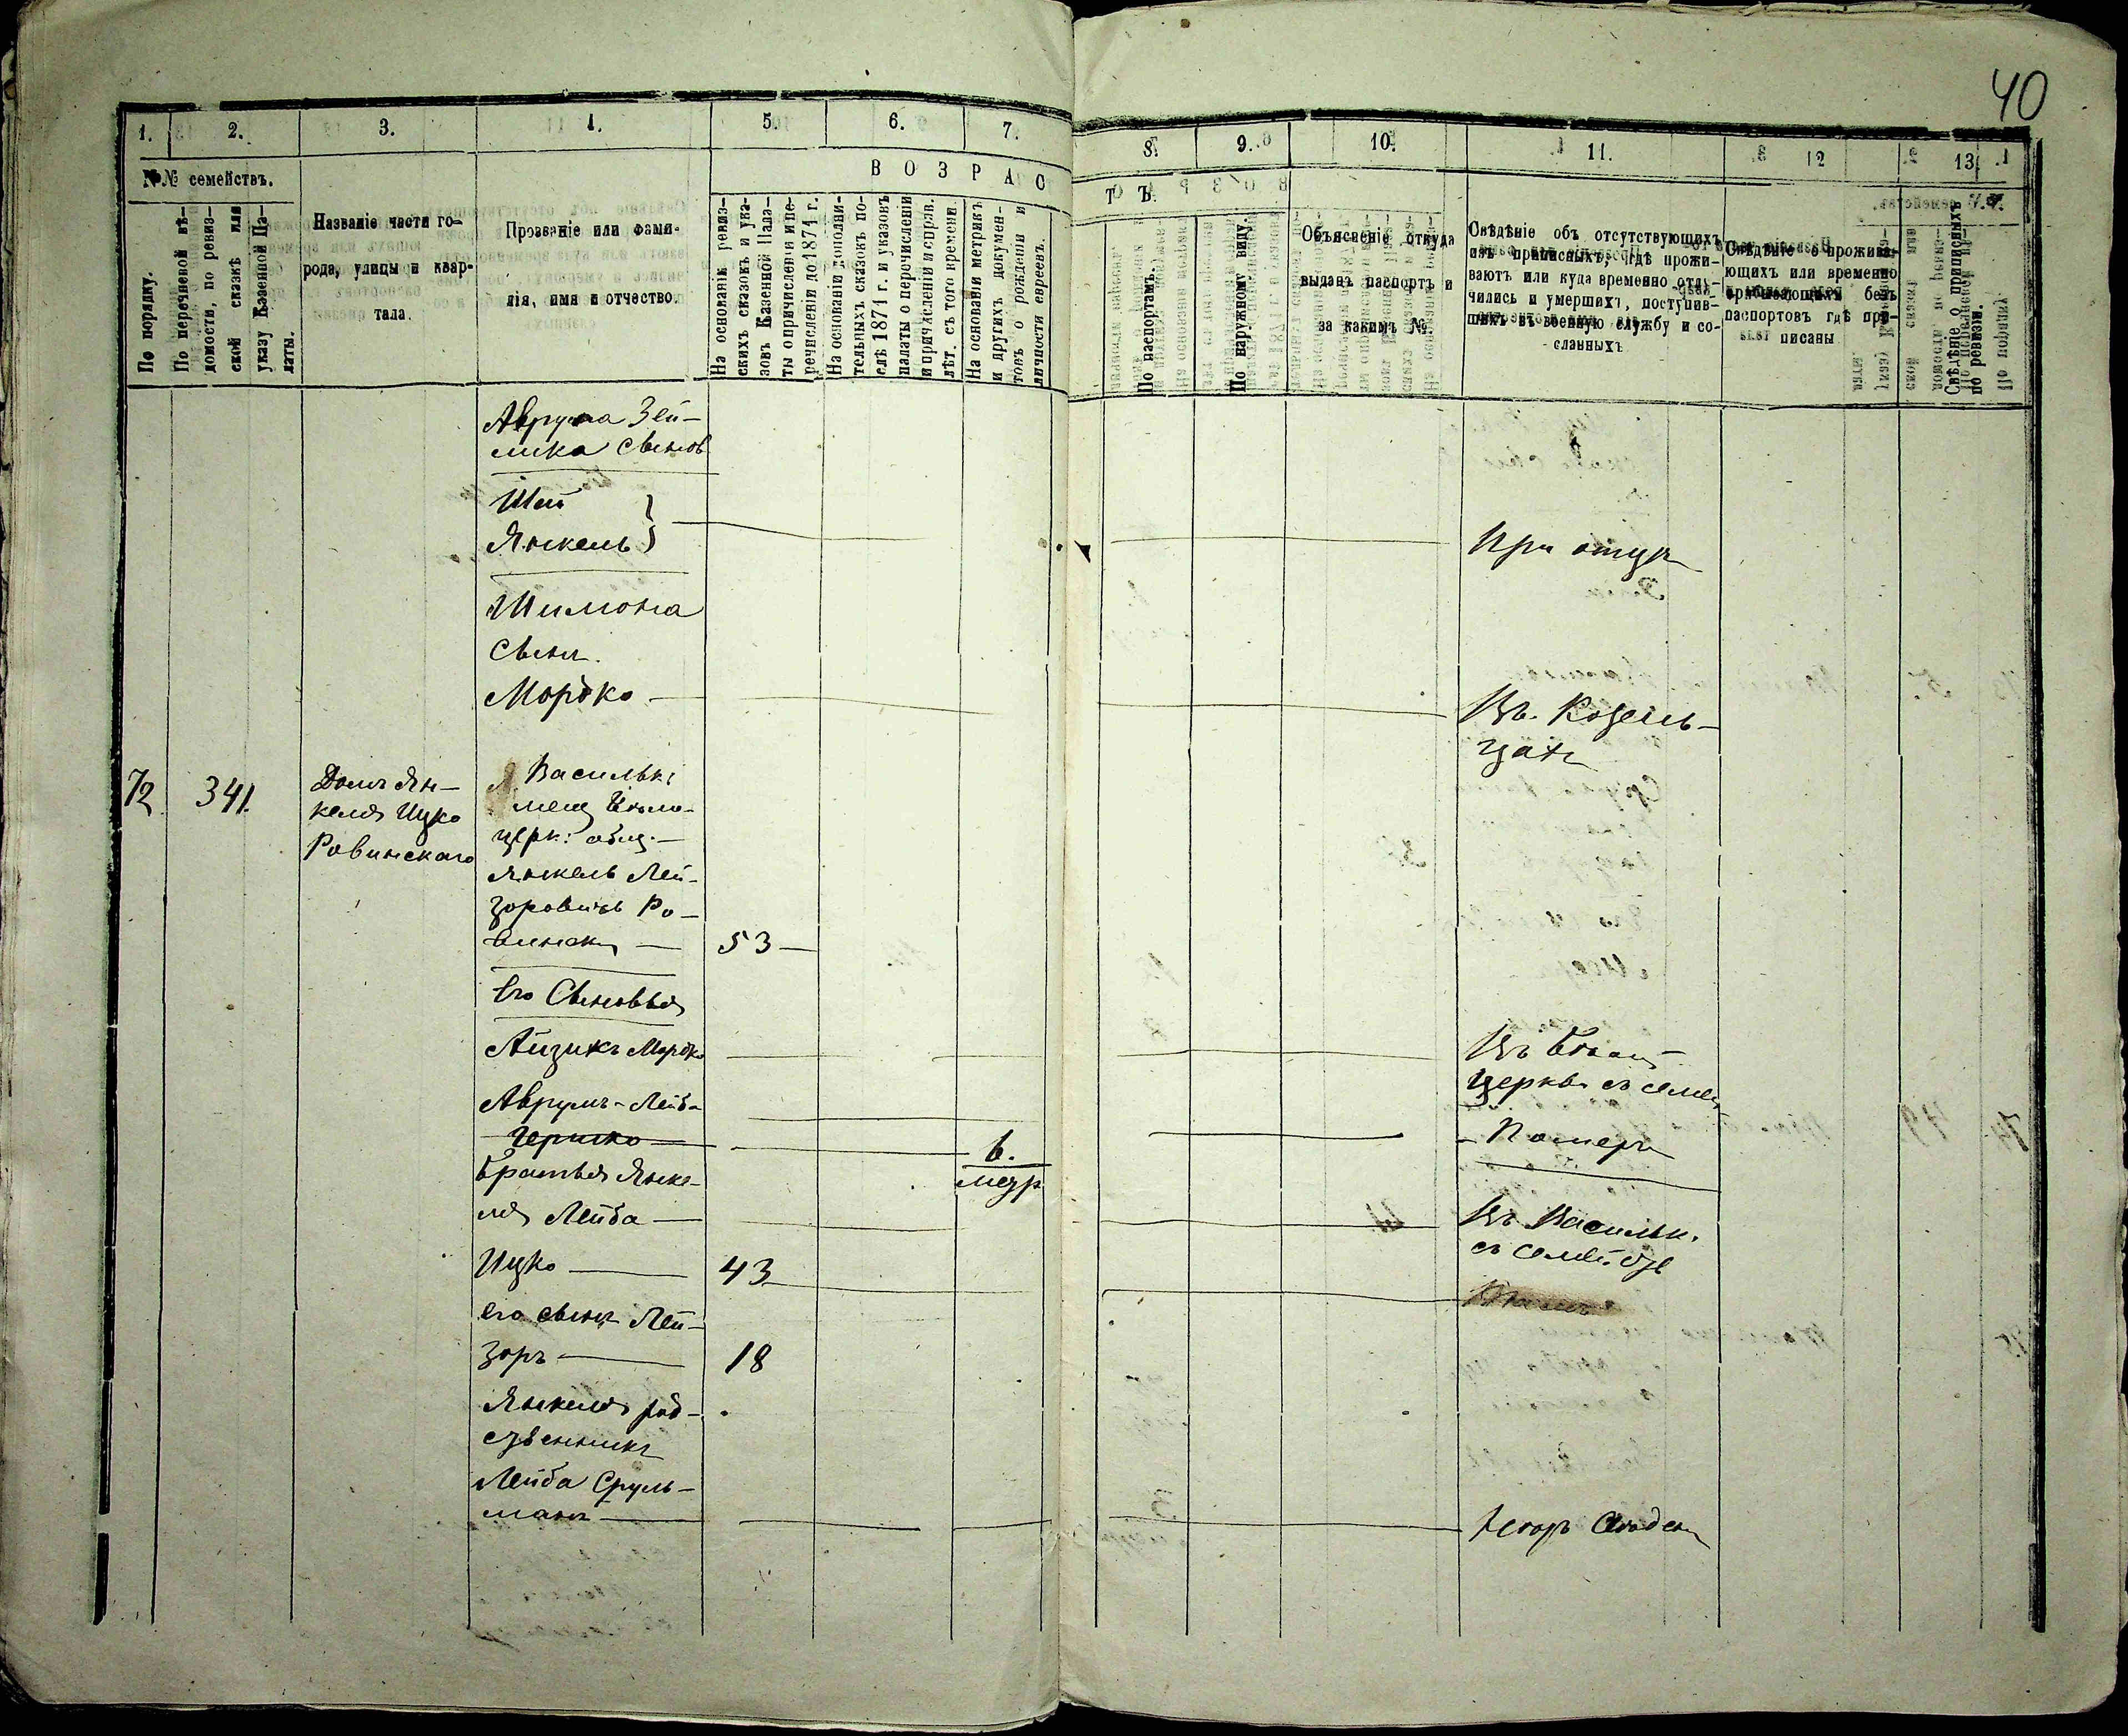 40
1. 2. 3. 4. 5. 6. 7. 8. 9. 10. 11. 12 13
№№ семействъ.
ВОЗРАСТЪ.
По порядку.
По перечневой вѣ-
домости, по ревиз-
ской сказкѣ или
указу Казенной Па-
латы.
Названіе части го-
рода, улицы и квар-
тала.
Прозваніе или фами-
лія, имя и отчество.
На основаніи ревиз-
скихъ сказокъ и ука-
зовъ Казенной Пала-
ты о причисленіи и пе-
речисленіи до 1871 г.
На основаніи дополни-
тельныхъ сказокъ по-
слѣ 1871 г. и указовъ
палаты о перечисленіи
и причисленіи и справ.
лѣт. съ того времени.
На основаніи метрикъ
и другихъ докумен-
товъ о рожденіи и
личности евреевъ.
По паспортамъ.
По наружному виду.
Объясненіе откуда
выданъ паспортъ и
за какимъ №.
Свѣдѣніе объ отсутствующихъ
изъ приписныхъ, гдѣ прожи-
ваютъ или куда временно отлу-
чились и умершихъ, поступив-
шихъ въ военную службу и со-
сланныхъ
Свѣдѣніе о прожива-
ющихъ или временно
безъ
паспортовъ гдѣ при-
писаны
Свѣдѣніе о приписныхъ
по ревизіи.
Аврума Зей-
лика сынов
Шей
Янкель
При отцѣ
Шимона
сынъ.
Мордко
Въ. Козель-
72 341. Домъ Ян-
келя Ицко
Ровинскаго
Васильк:
мещ Бѣло-
церк: общ.
Янкель Лей-
зоровичъ Ро-
винскій 53
Его Сыновья
Айзикъ Мордко
Въ Бѣлой
Церкви съ семей
Аврумъ-Лейба
Гершко 6.
мѣр
Померъ
Братья Янке-
ля Лейба
Въ Васильк.
съ семей.
Ицко 43
его сынъ Лей-
зоръ 18
Янкеля род-
ственникъ
Лейба Сруль-
манъ